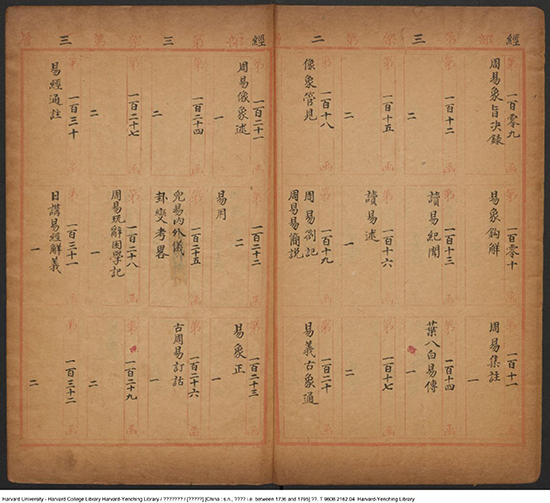 經部第三架第二
第一百零九函
周易象旨决錄
第一百零十函
易象鈎解
第一百十一函
周易集註
第一百十二函
二
第一百十三函
讀易紀聞
第一百十四函
葉八白易傳
一
第一百十五函
二
第一百十六函
讀易述
一
第一百十七函
二
第一百十八函
像象管見
第一百十九函
周易劄記
周易易簡說
第一百二十函
易義古象通
經部第三架第三
第一百二十一函
周易像象述
一
第一百二十二函
易用
二
第一百二十三函
易象正
一
第一百二十四函
二
第一百二十五函
兒易內外儀
卦變考畧
第一百二十六函
古周易訂詁
一
第一百二十七函
二
第一百二十八函
周易玩辭困學記
一
第一百二十九函
二
第一百三十函
易經通註
第一百三十一函
日講易經解義
一
第一百三十二函
二
Harvard University - Harvard College Library Harvard-Yenching Library / ??????? / [?????] [China : s.n., ???? i.e. between 1736 and 1795] ??. T 9608 2162.04 Harvard-Yenching Library